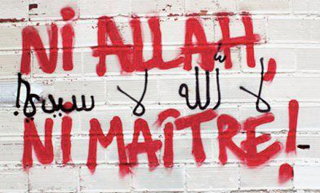 NI ALLAH,
لا الله لا سيدي!
NI MAÎTRE!